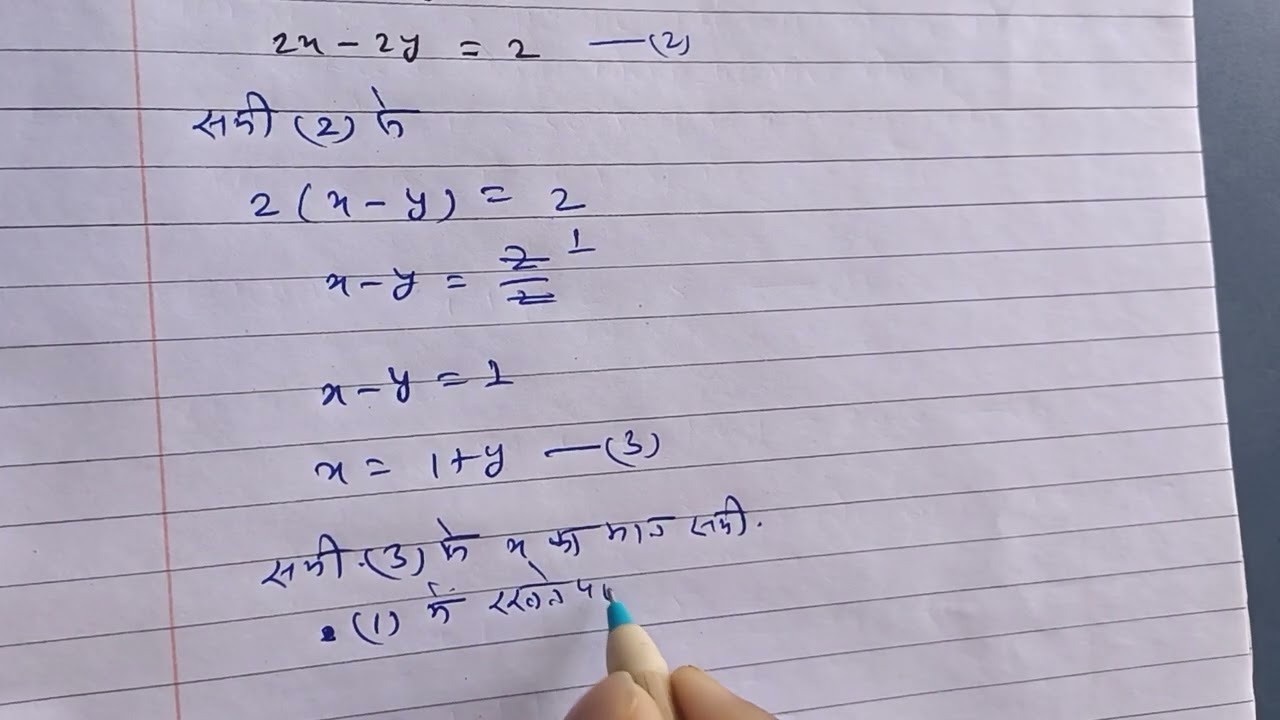 2x - 2y = 2 —(2)
समी (2) से
2 (x - y) = 2
x - y = 2/2 1
x - y = 1
x = 1 + y —(3)
समी. (3) से x का मान समी.
(1) में रखने पर